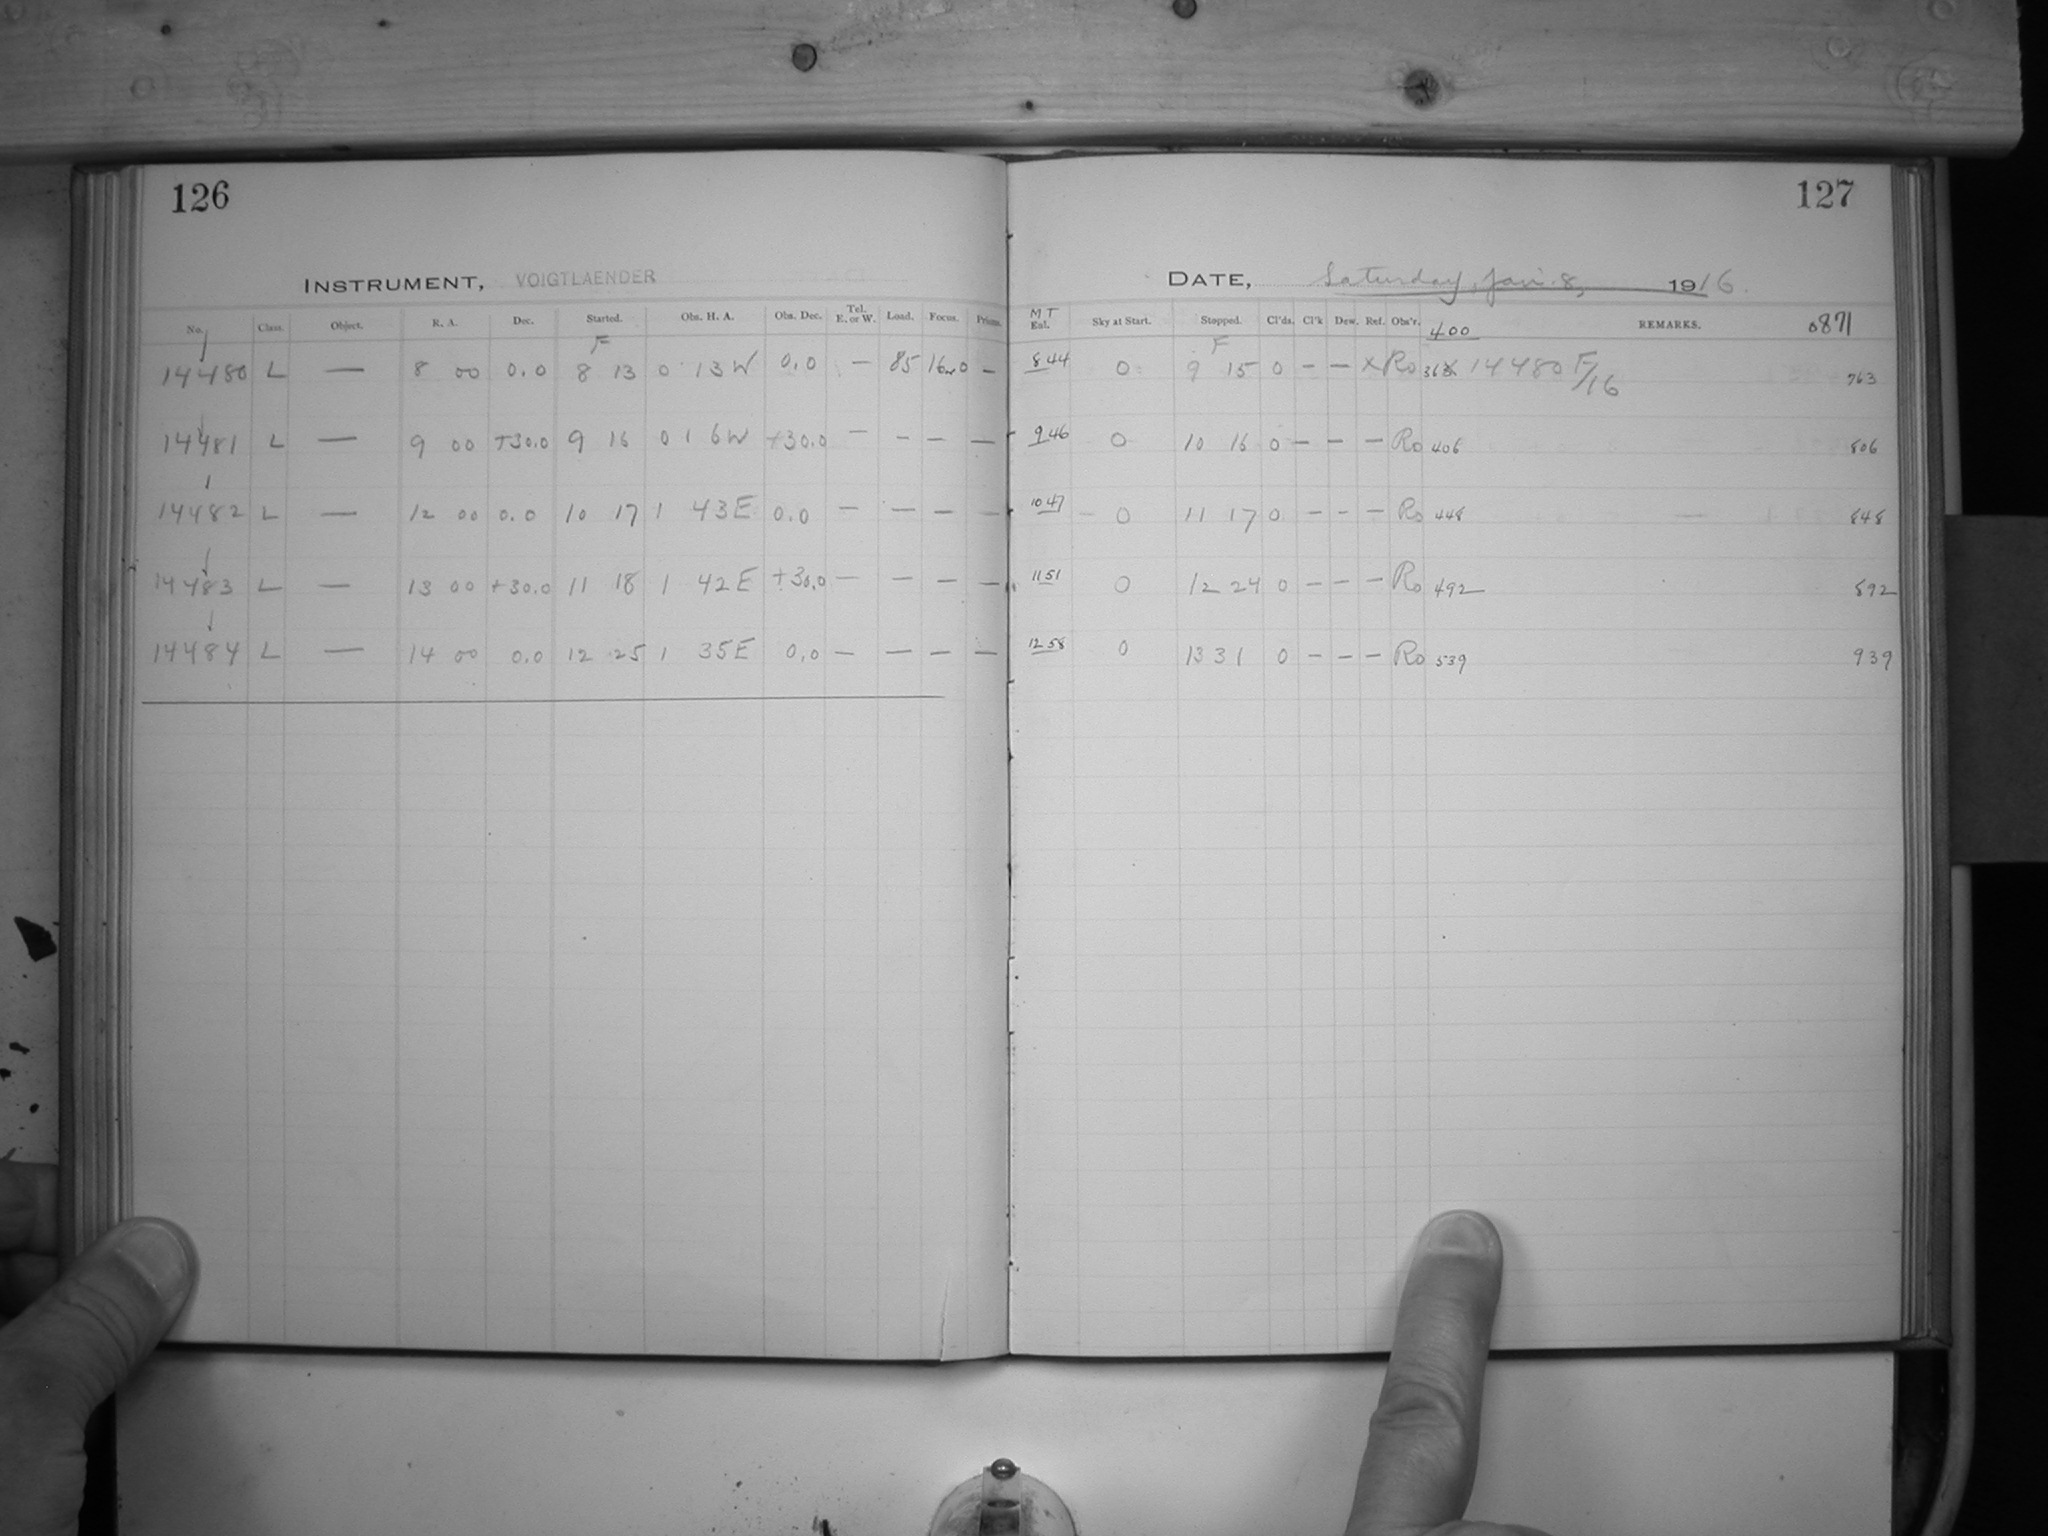 126
127
INSTRUMENT, VOIGTLAENDER
DATE, Saturday, Jan. 8, 1916.
No. Class. Object. R. A. Dec. Started. Obs. H. A. Obs. Dec. Tel. E. or W. Load. Focus. Prisms. M T Eal. Sky at Start. Stopped. Cl'ds. Cl'k Dew. Ref. Obs'r. 400 REMARKS. 0871
F F
14480 L — 8 00 0.0 8 13 0 13W 0.0 — 85 — 8 44 0 9 15 0 — — X Ro 14480 F/16 763
14481 L — 9 00 +30.0 9 16 0 16W +30.0 — – — — 9 46 0 10 16 0 — — — Ro 406 806
14482 L — 12 00 0.0 10 17 1 43E 0.0 — — — — 10 47 0 11 17 0 – – — Ro 448 848
14483 L — 13 00 +30.0 11 18 1 42E +30.0 — — — — 11 51 0 12 24 0 – – — Ro 492 892
14484 L — 14 00 0.0 12 25 1 35E 0.0 — — — — 12 58 0 13 31 0 – – — Ro 539 939